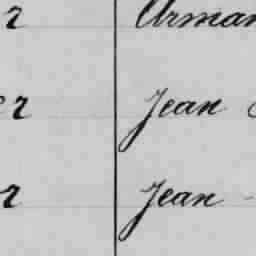 r Arman
er Jean
r Jean